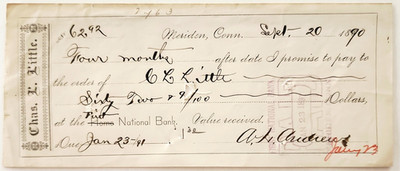 Chas. L. Little.
62 92
Meriden, Conn. Sept. 20 1890
Four months after date I promise to pay to
the order of C L Little
Sixty Two 92/100 Dollars,
at First Home National Bank. Value received.
Due Jan 23-91
Jany 23